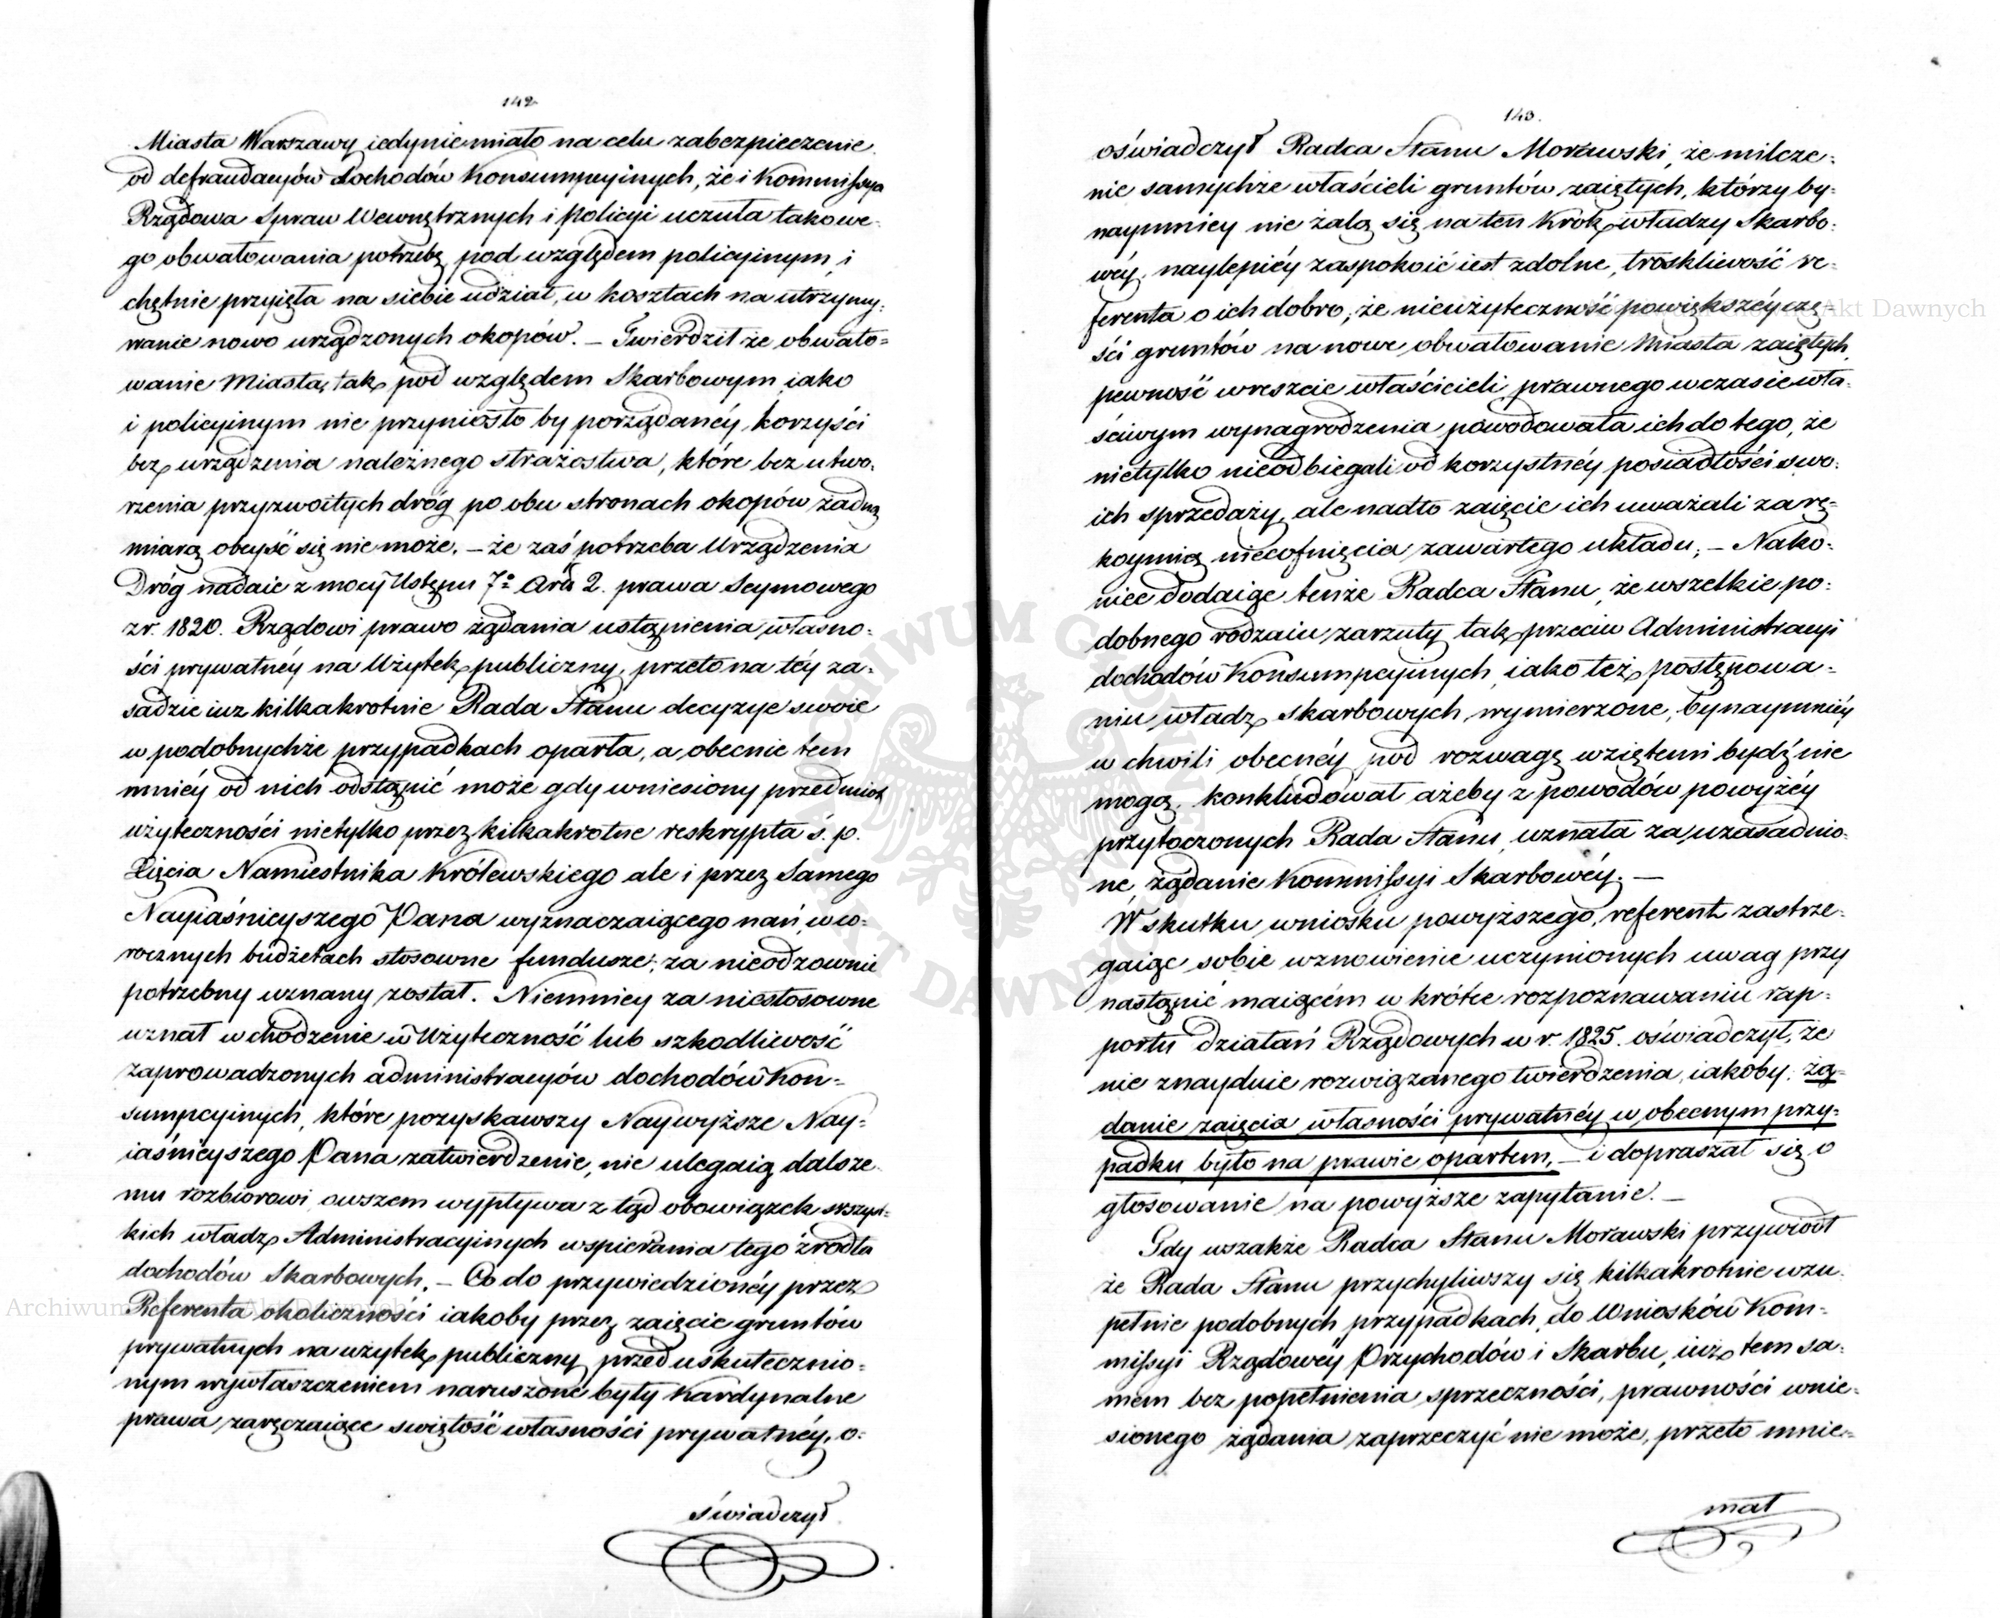 142
Miasta Warszawy iedynie miało na celu zabezpieczenie
od defraudacyów dochodów Konsumpcyinych, że i Kommissya
Rządowa Spraw Wewnętrznych i Policyi uczuła takowe-
go obwałowania potrzebę pod względem policyinym i
chętnie przyięła na siebie udział w kosztach na utrzymy-
wanie nowo urządzonych okopów. – Twierdził że obwało-
wanie Miasta, tak pod względem Skarbowym iako
i policyinym nie przyniosło by porządanéy korzyści
bez urządzenia należnego strażostwa, które bez utwo-
rzenia przyzwoitych dróg po obu stronach okopów żadną
miarą obeyść się nie może. – że zaś potrzeba Urządzenia
Dróg nadaie z mocy Ustępu 7º Artu 2. prawa Seymowego
z r. 1820. Rządowi prawo żądania ustąpienia własno-
ści prywatnéy na Użytek publiczny, przeto na téy za-
sadzie iuz kilkakrotnie Rada Stanu decyzye swoie
w podobnychże przypadkach oparła, a obecnie tem
mniéy od nich odstąpić może gdy wniesiony przedmiot
użyteczności nietylko przez kilkakrotne reskrypta ś. p.
Xięcia Namiestnika Królewskiego ale i przez Samego
Nayiaśnieyszego Pana wyznaczaiącego nań w co-
rocznych budżetach stosowne fundusze, za nieodzownie
potrzebny uznany został. Niemniey za niestosowne
uznał wchodzenie w Użyteczność lub szkodliwość
zaprowadzonych administracyów dochodów Kon-
sumpcyinych, które pozyskawszy Naywyższe Nay-
iaśnieyszego Pana zatwierdzenie, nie ulegaią dalsze
mu rozbiorowi, owszem wypływa z tąd obowiązek wszyst-
kich władz Administracyinych wspierania tego źrodła
dochodów Skarbowych. – Co do przywiedzionéy przez
Referenta okoliczności iakoby przez zaięcie gruntów
prywatnych na użytek publiczny przed uskutecznio-
nym wywłaszczeniem naruszone były Kardynalne
prawa zaręczaiące swiętość własności prywatnéy, o-
świadczył
143.
oświadczył Radca Stanu Morawski, że milcze-
nie samychże właścicieli gruntów zaiętych, którzy by-
naymniey nie żalą się na ten Krok władzy Skarbo-
wéy, naylepiéy zaspokoić iest zdolne, troskliwość re-
ferenta o ich dobro; że nieużyteczność powiększéy czę-
ści gruntów na nowe obwałowanie Miasta zaiętych,
pewność wreszcie właścicieli prawnego w czasie wła-
ściwym wynagrodzenia powodowała ich do tego, że
nietylko nieodbiegali od korzystnéy posiadłości swo-
ich sprzedaży, ale nadto zaięcie ich uważali za rę-
koymią niecofnięcia zawartego układu, – Nako-
niec dodaiąc tenże Radca Stanu, że wszelkie po-
dobnego rodzaiu zarzuty tak przeciw Administracyi
dochodów Konsumpcyinych, iako też postępowa-
niu władz skarbowych wymierzone, bynaymniéy
w chwili obecnéy pod rozwagę wziętemi bydź nie
mogą, konkludował ażeby z powodów powyżéy
przytoczonych Rada Stanu uznała za uzasadnio-
ne żądanie Kommissyi Skarbowéy. –
W skutku wniosku powyższego, referent zastrze-
gaiąc sobie wznowienie uczynionych uwag przy
nastąpić maiącém w krótce rozpoznawaniu rap-
portu działań Rządowych w r. 1825. oświadczył, że
nie znayduie rozwiązanego twierdzenia, iakoby: żą-
danie zaięcia własności prywatnéy w obecnym przy-
padku było na prawie opartem, – i dopraszał się o
głosowanie na powyższe zapytanie. –
Gdy wszakże Radca Stanu Morawski przywiodł
że Rada Stanu przychyliwszy się kilkakrotnie w zu-
pełnie podobnych przypadkach, do Wniosków Kom-
missyi Rządowéy Przychodów i Skarbu, iuż tem sa-
mem bez popełnienia sprzeczności, prawności wnie-
sionego żądania zaprzeczyć nie może, przeto mnie-
mał
Archiwum Główne Akt Dawnych